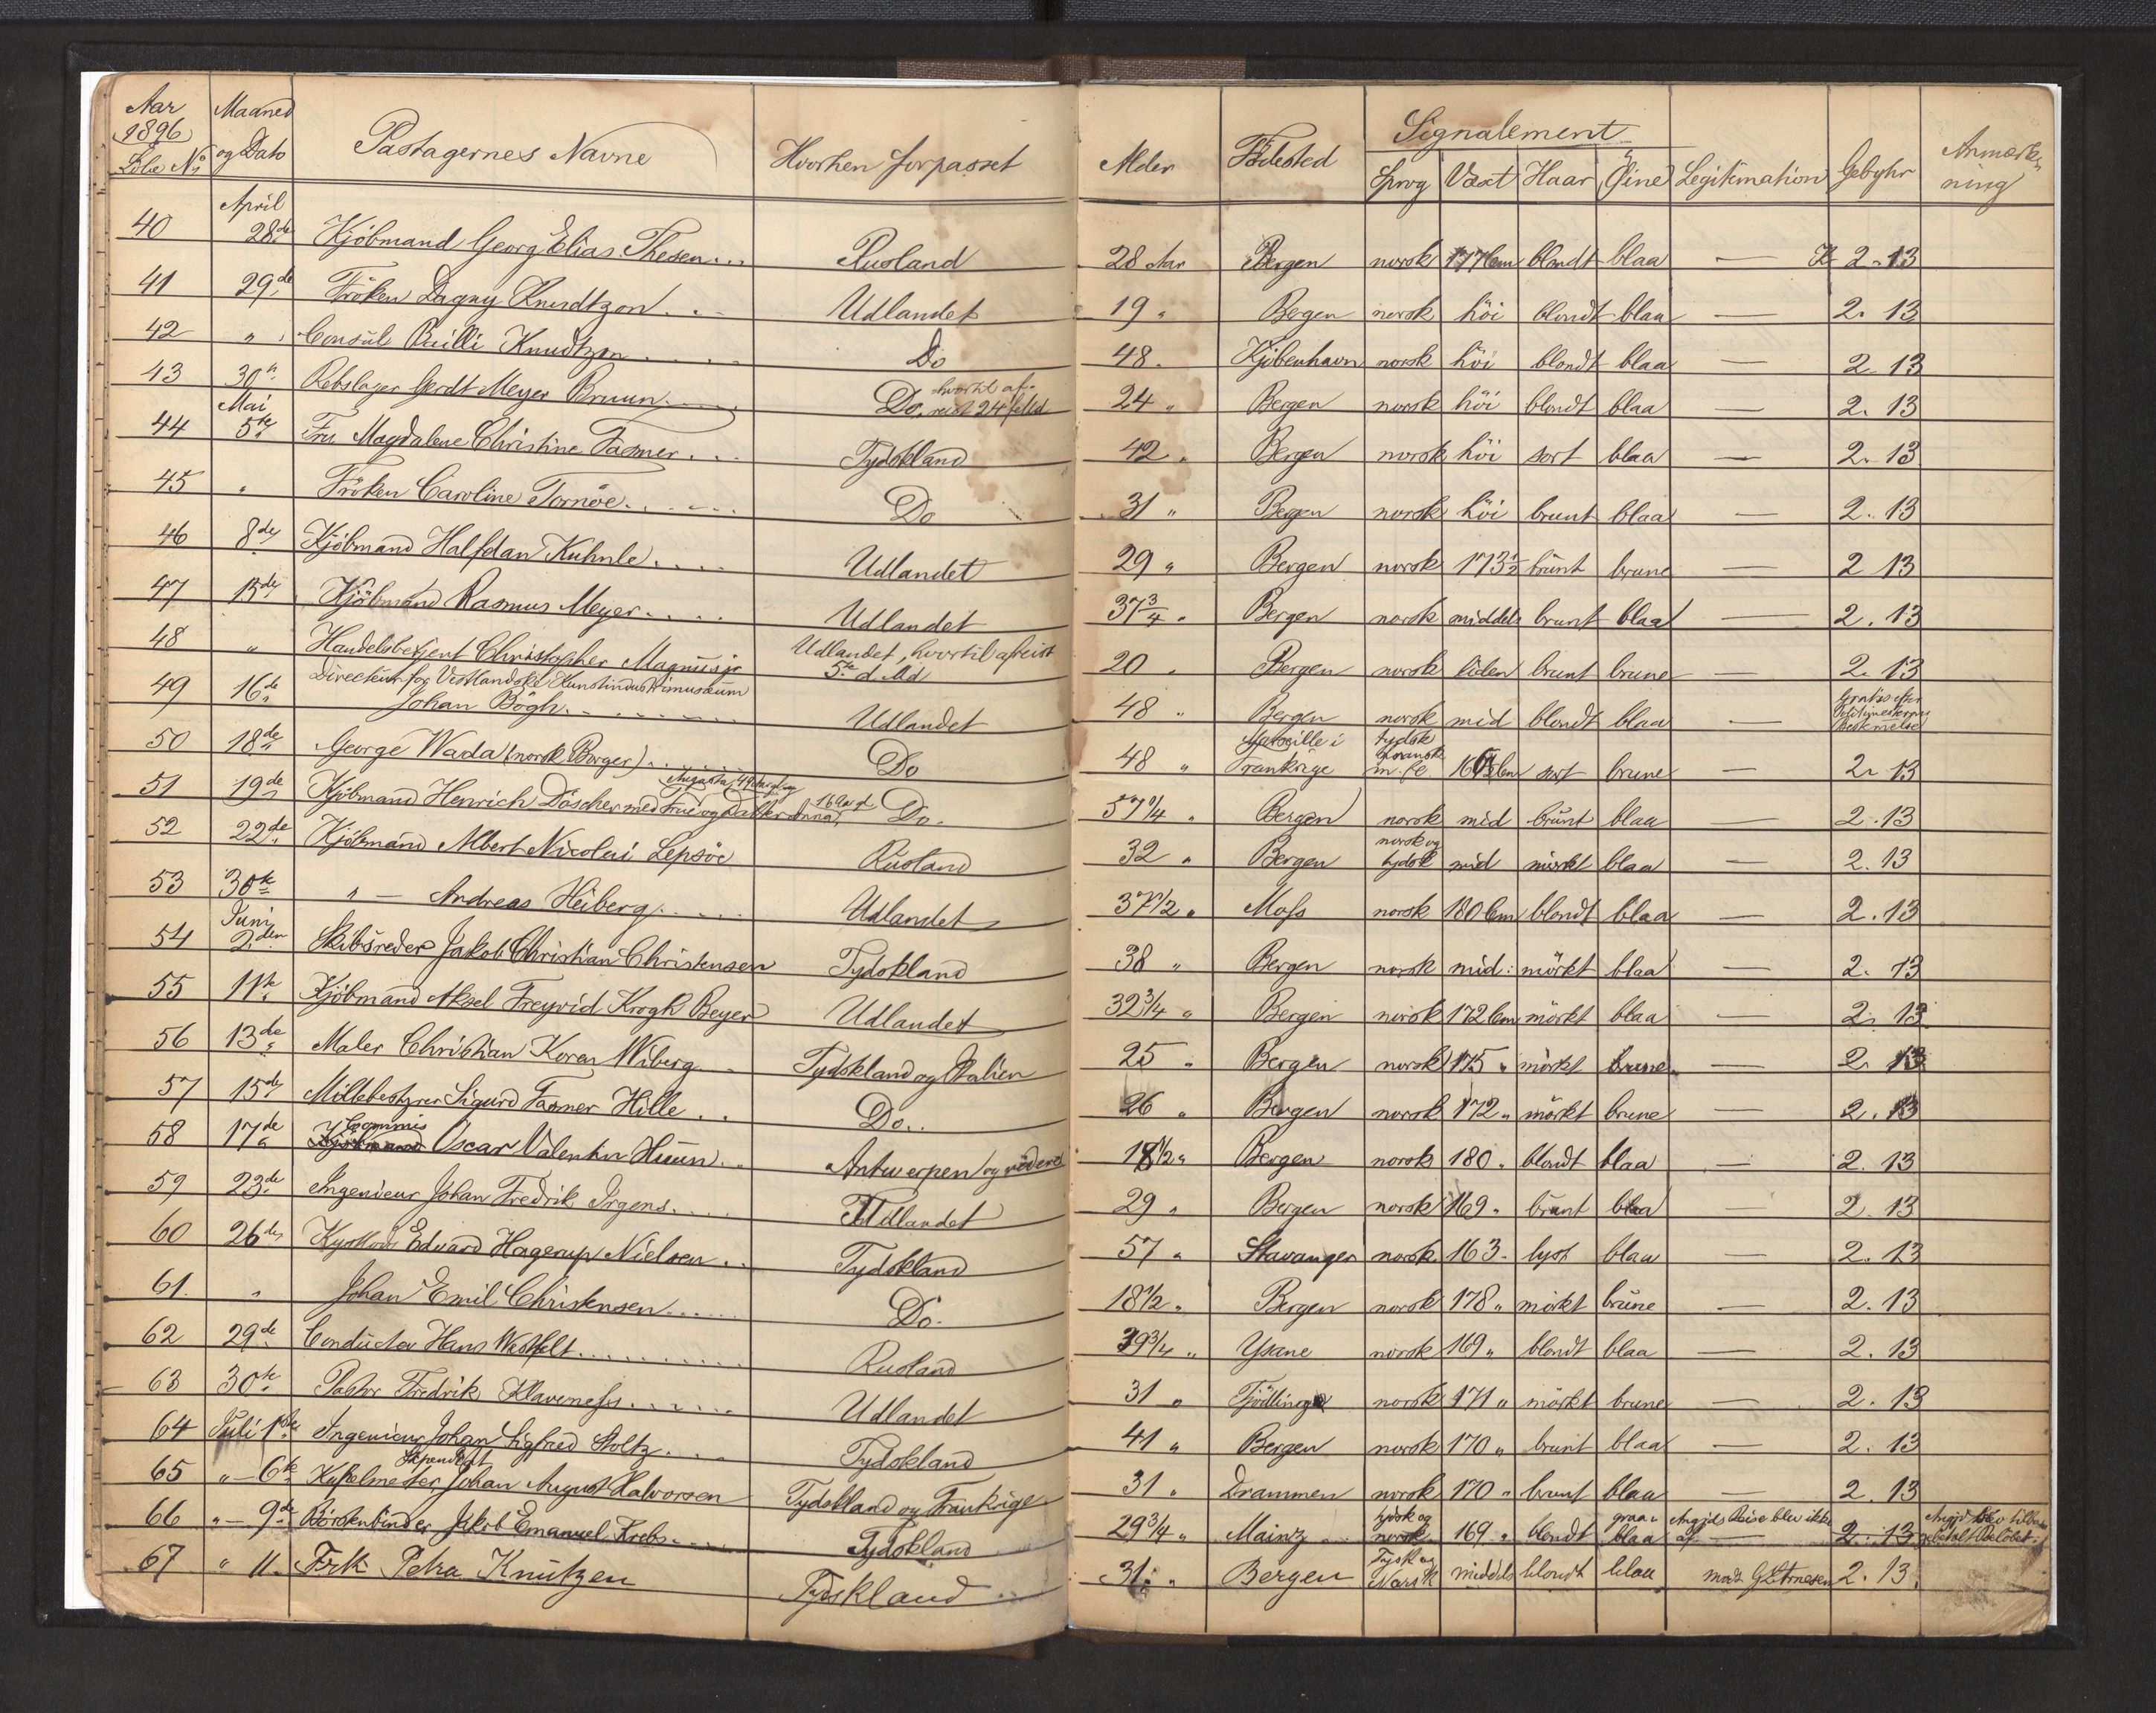 Aar 1896 Löbe No Maaned og Dato Passagernes Navne Hvorhen forpasset Alder Födested Signalement Sprog Vext Haar Öine Legitimation Gebyhr Anmærkning
April
40 28de Kjöbmand Georg Elias Thesen... Rusland 28 Aar Bergen norsk 177 Cm blondt blaa — 2. 13
41 29de Fröken Dagny Knudtzon... Udlandet 19 " Bergen norsk höi blondt blaa — 2. 13
42 " Consul Knudtzon.... Do 48 " Kjöbenhavn norsk höi blondt blaa — 2. 13
43 30te Rebslager Gerdt Meyer Bruun.... Do, hvortil af- reist 24 24 " Bergen norsk höi blondt blaa — 2. 13
Mai
44 5te Fru Magdalene Christine Fasmer... Tydskland 42 " Bergen norsk höi sort blaa — 2. 13
45 " Fröken Caroline Tornöe..... Do 31 " Bergen norsk höi brunt blaa — 2. 13
46 8de Kjöbmand Halfdan Kuhnle.... Udlandet 29 " Bergen norsk 173½ brunt brune — 2 13
47 15de Kjöbmand Rasmus Meyer.... Udlandet 37¾ " Bergen norsk middels brunt blaa — 2. 13
48 " Handelsbetjent Christopher Magnus jr Udlandet, hvortil afreist 5te d. Md 20 " Bergen norsk liden brunt brune — 2. 13
49 16de Directeur for Vestlandske Kunstindustrimuseum
Johan Bögh...... Udlandet 48 " Bergen norsk mid blondt blaa — Gratis efter Politimesterens
50 18de George Wada (norsk Borger)..... Do 48 " Marseille i Frankrige tydsk fransk sort brune — 2. 13
51 19de Kjöbmand Henrich Döscher med Frue Augusta, og Datter Anna, 16 Do. 57¼ " Bergen norsk mid brunt blaa — 2. 13
52 22de Kjöbmand Albert Nicolai Lepsöe Rusland 32 " Bergen norsk og tydsk mid mörkt blaa — 2. 13
53 30te " — Andreas Heiberg.... Udlandet 37½ " Moss norsk 180 Cm blondt blaa — 2. 13
Juni
54 2den Skibsreder Jakob Christian Christensen Tydskland 38 " Bergen norsk mid: mörkt blaa — 2. 13
55 11te Kjöbmand Aksel Freyvid Krogh Beyer Udlandet 32¾ " Bergen norsk 172 Cm mörkt blaa — 2. 13
56 13de Maler Christian Koren Wiberg Tydskland og Italien 25 " Bergen norsk 175 " mörkt brune — 2. 13
57 15de Möllebestyrer Sigurd Fasmer Hille.. Do.. 26 " Bergen norsk 172 " mörkt brune — 2. 13
58 17de Kjöbmand Commis Oscar Valentin Huun.. Antwerpen og videre 18½ " Bergen norsk 180 " blondt blaa — 2. 13
59 23de Ingenieur Johan Fredrik Irgens.... Udlandet 29 " Bergen norsk 169 " brunt blaa — 2. 13
60 26de Edvard Hagerup Nielsen.. Tydskland 57 " Stavanger norsk 163 " lyst blaa — 2. 13
61. " Johan Emil Christensen..... Do. 18½ " Bergen norsk 178 " mörkt brune — 2. 13
62 29de Conductör Hans Westfelt.......... Rusland 39¾ " Ysane norsk 169 " blondt blaa — 2. 13
63 30te Pastor Fredrik Klaveness...... Udlandet 31 " Tjödling norsk 171 " mörkt brune — 2. 13
64 Juli 1ste Ingenieur Johan Sigfried Stoltz... Tydskland 41 " Bergen norsk 170 " brunt blaa — 2. 13
65 " — 6te Stipendiat Kapelmester Johan August Halvorsen Tydskland og Frankrige 31 " Drammen norsk 170 " brunt blaa — 2. 13
66 " — 9de Börstenbinder Jakob Emanuel Krebs..... Tydskland 29¾ " Mainz tydsk og norsk 169 " blondt graa blaa Reise blev ikke af. — 2. 13 blev
67 " 11. Frk Petra Knutzen Tydskland 31 " Bergen Tysk og Norsk middels blondt blaa 2. 13.